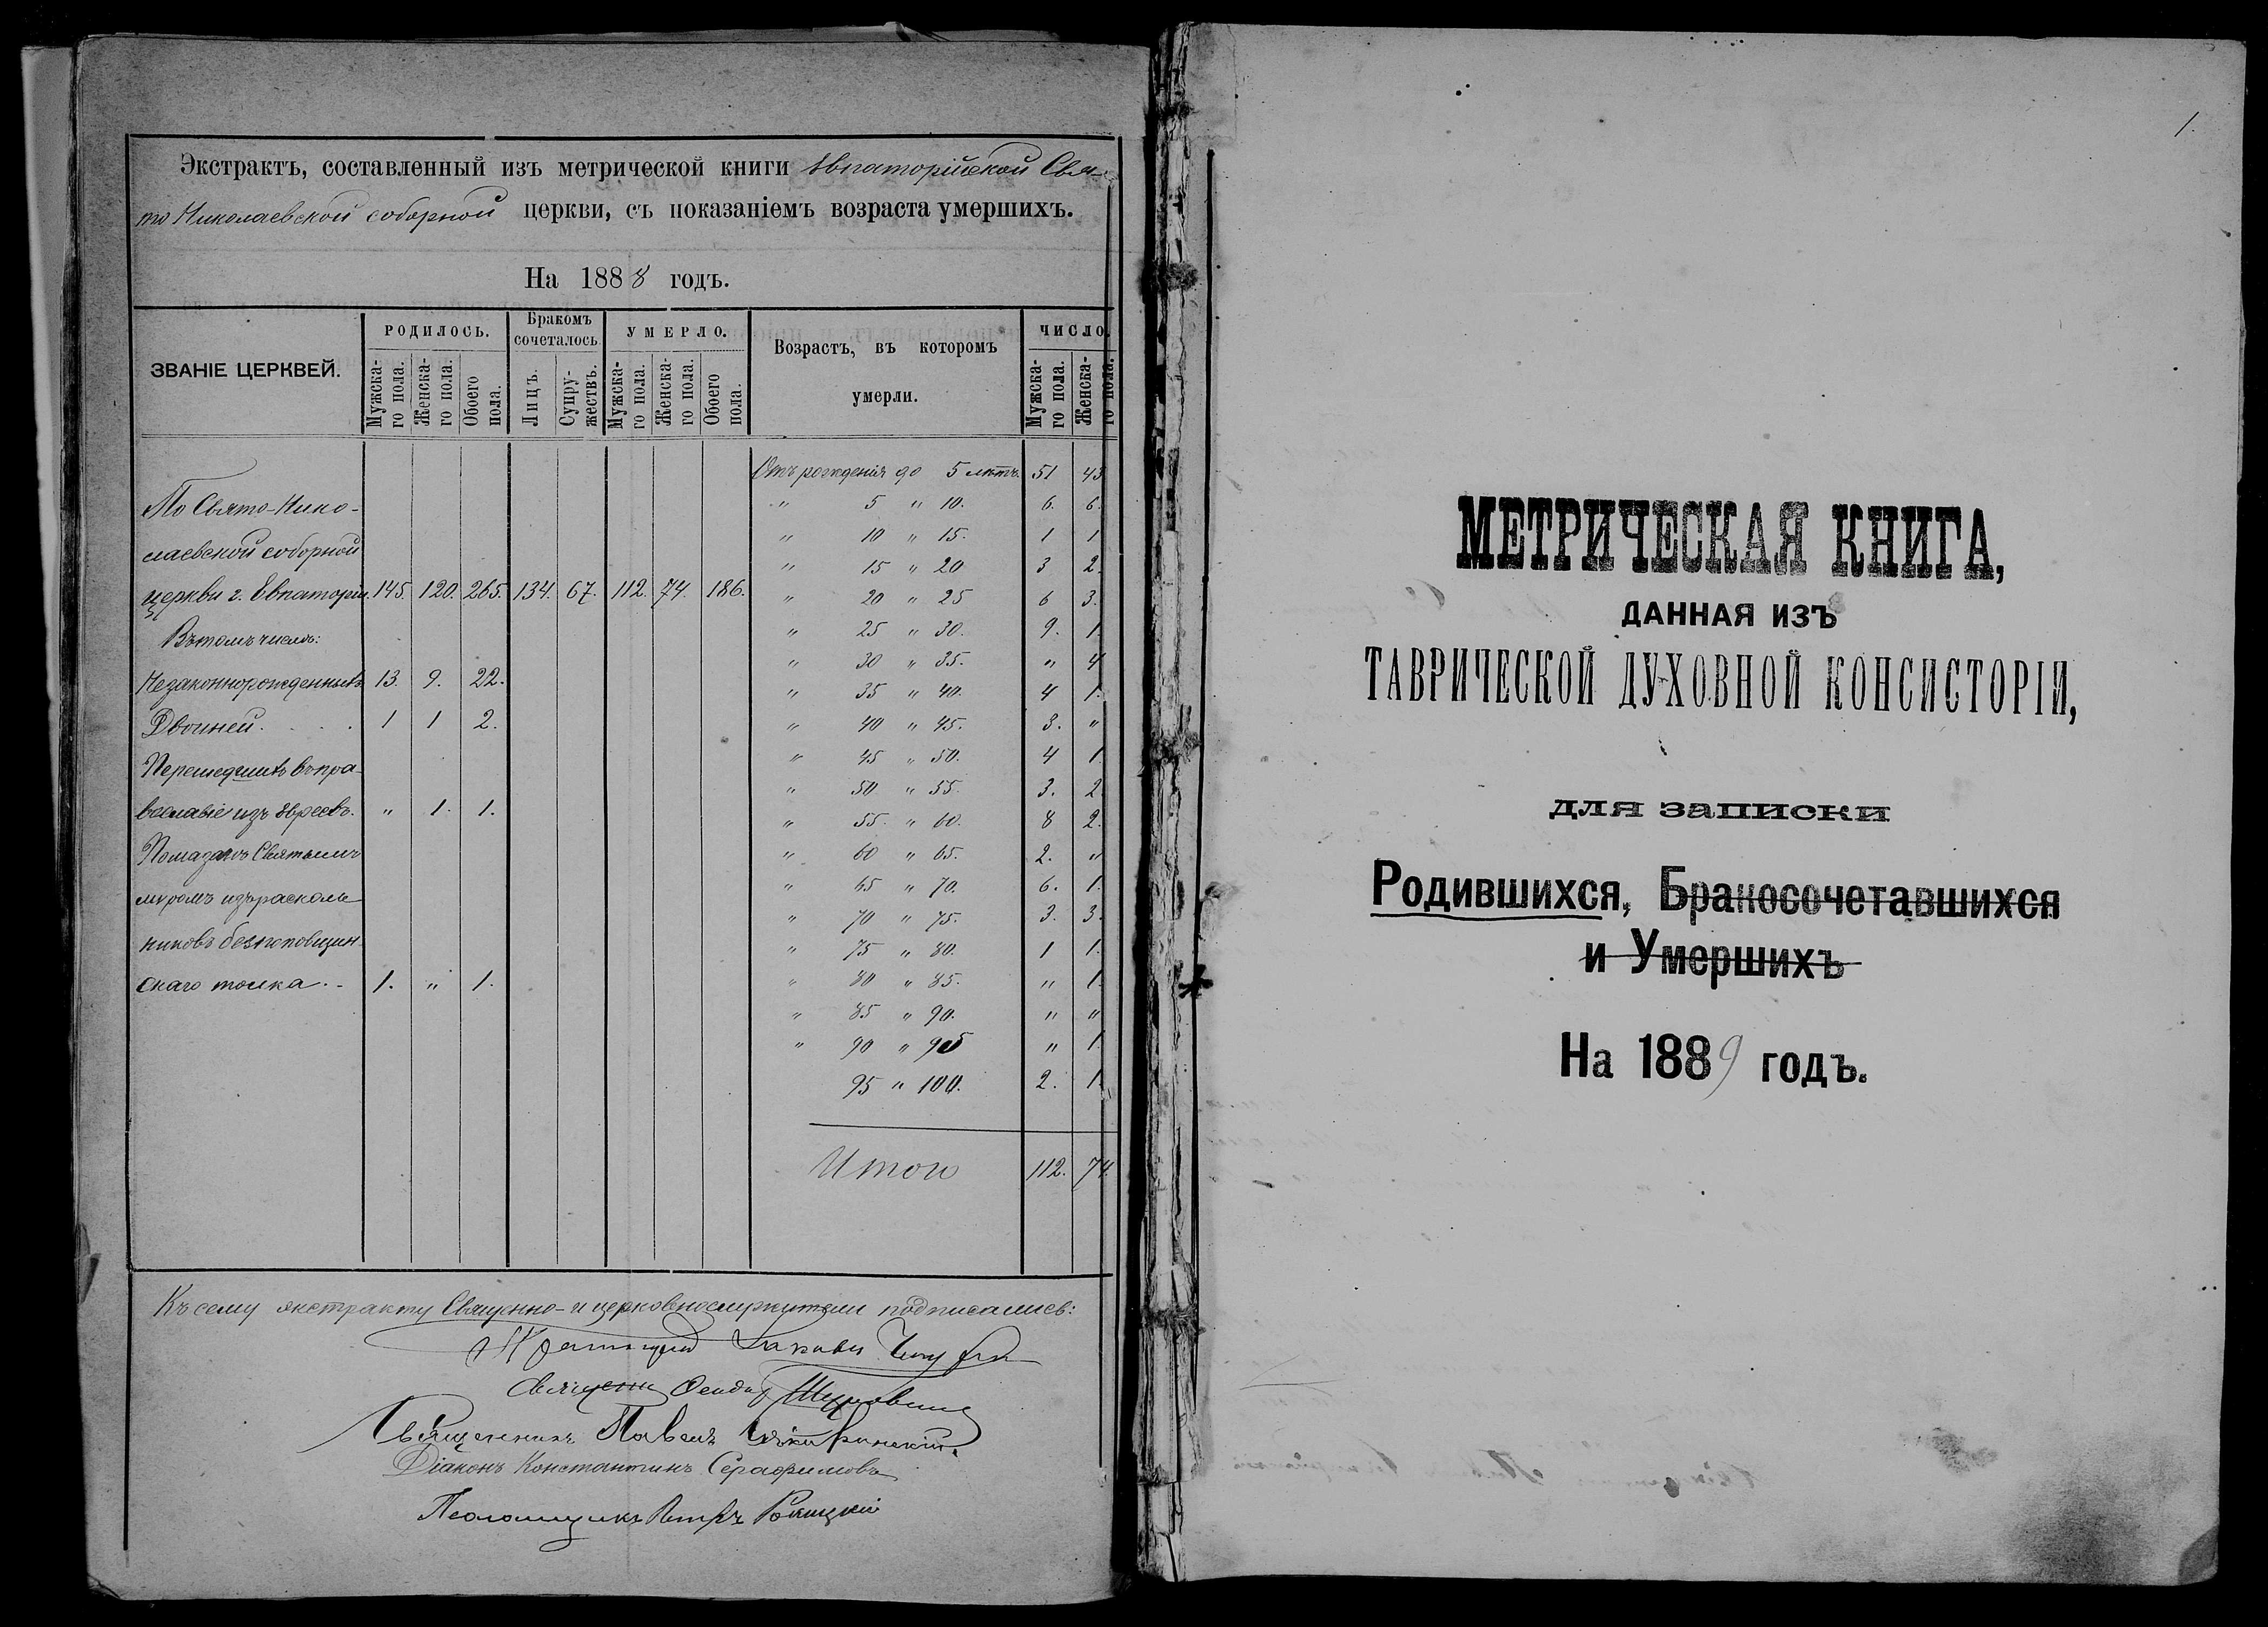 Экстрактъ, составленный изъ метрической книги Евпаторійской Свя-
то Николаевской соборной церкви, съ показаніемъ возраста умершихъ.
На 1888 годъ.
ЗВАНІЕ ЦЕРКВЕЙ.
РОДИЛОСЬ.
Мужска-го пола.
Женска-го пола.
Обоего пола.
Бракомъ сочеталось
Лицъ.
Супру-жествъ.
УМЕРЛО.
Мужска-го пола.
Женска-го пола.
Обоего пола.
Возрастъ, въ которомъ
умерли.
ЧИСЛО.
Мужска-го пола.
Женска-го пола.
По Свято-Нико-
лаевской соборной
церкви г. Евпаторіи. 145. 120. 265. 134. 67. 112. 74. 186.
Въ томъ числѣ:
Незаконнорожденныхъ 13. 9. 22.
Двоиней . . . 1 1 2.
Перешедшихъ въ пра-
вославіе изъ евреевъ. " 1. 1.
Помазанъ Святымъ
мѵромъ изъ расколь-
никовъ безпоповщин-
скаго толка. - 1. " 1.
Отъ рожденія до 5 лѣтъ. 51 43
" 5 " 10. 6. 6.
" 10 " 15. 1 1
" 15 " 20 3 2.
" 20 " 25 6 3.
" 25 " 30. 9. 1.
" 30 " 35. " 4
" 35 " 40. 4 1.
" 40 " 45. 3. "
" 45 " 50. 4 1
" 50 " 55. 3. 2
" 55. " 60. 8 2.
" 60 " 65. 2. "
" 65 " 70. 6. 1.
" 70 " 75. 3. 3.
" 75 " 80. 1 1.
" 80 " 85. " 1.
" 85 " 90. " "
" 90 " 95 " 1.
95 " 100. 2. 1
Итого 112. 74.
Къ сему экстракту Священно- и церковнослужители подписались:
Протоіерей Іаковъ
Священн Феодор
Священникъ Павелъ
Діаконъ Константинъ Серафимовъ
Псаломщикъ Петръ
1.
МЕТРИЧЕСКАЯ КНИГА,
ДАННАЯ ИЗЪ
ТАВРИЧЕСКОЙ ДУХОВНОЙ КОНСИСТОРІИ,
для записки
Родившихся, Бракосочетавшихся
и Умершихъ
На 1889 годъ.